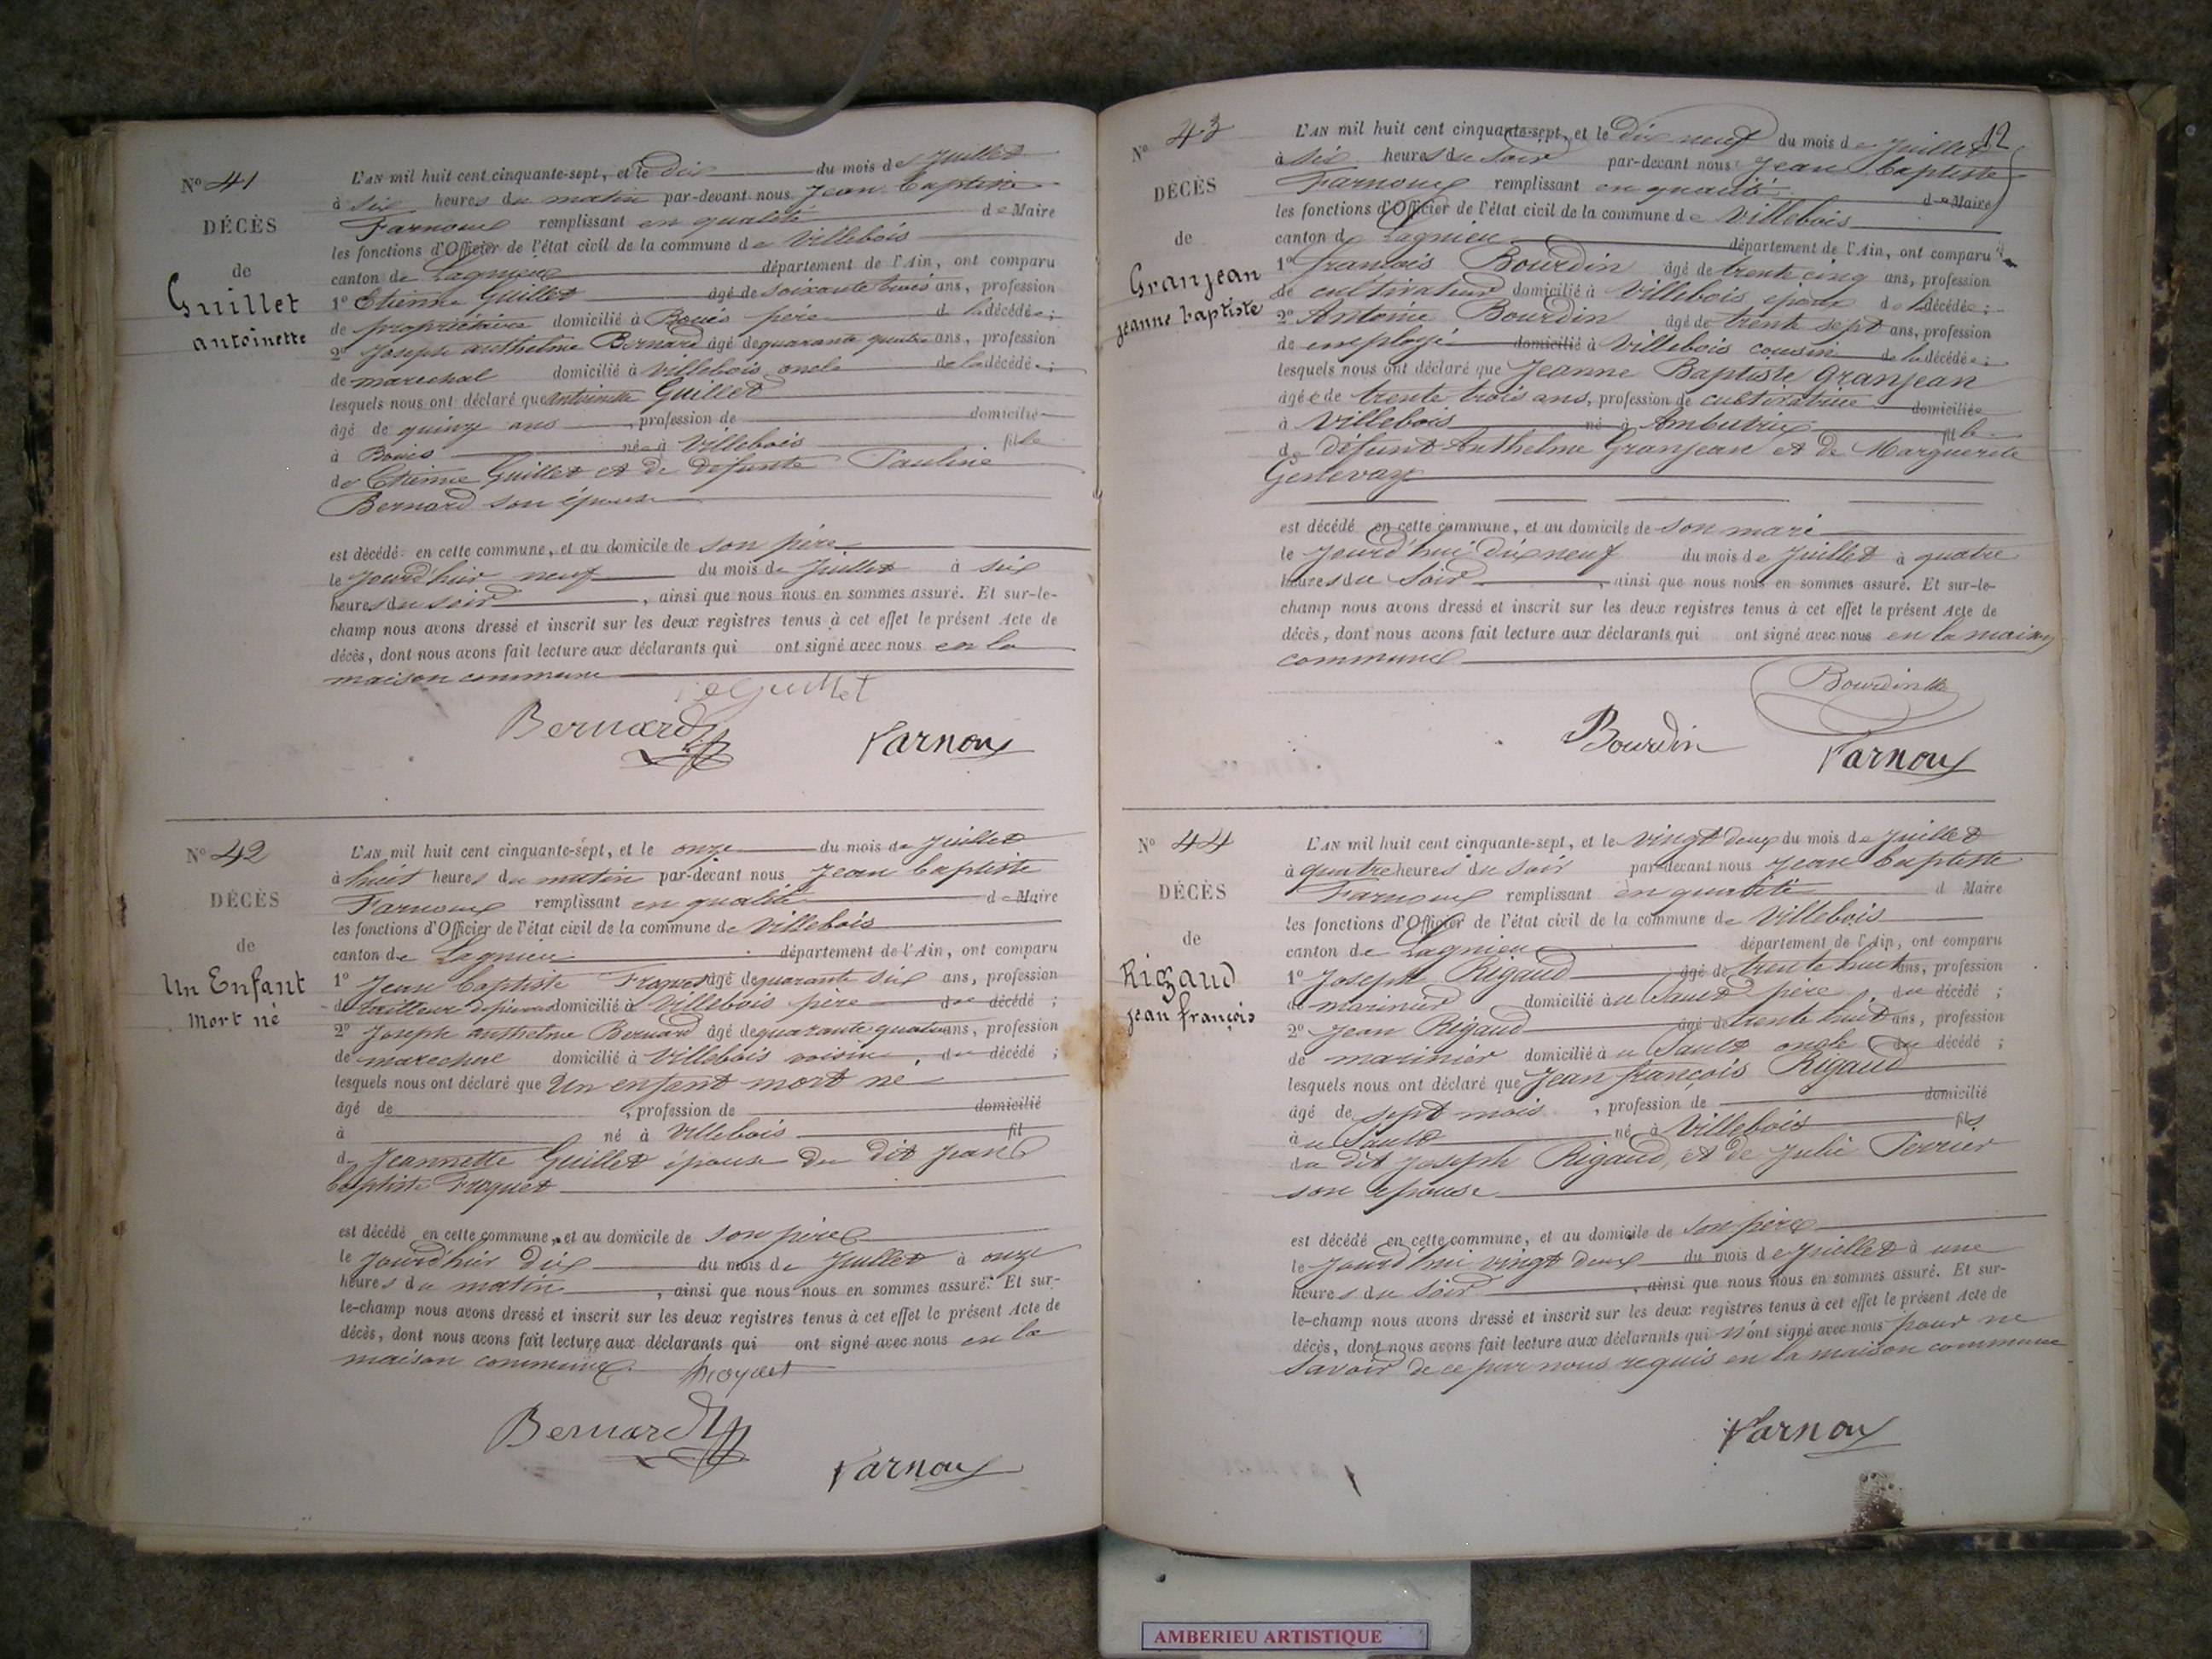 N° 41
DÉCÈS
de
Guillet
antoinette
L'AN mil huit cent cinquante-sept, et le dix du mois de Juillet
à six heures du matin par-devant nous Jean Baptiste
Farnoux remplissant en qualité de Maire
les fonctions d'Officier de l'état civil de la commune de Villebois
canton de Lagnieu département de l'Ain, ont comparu
1° Etienne Guillet âgé de soixante trois ans, profession
de propriétaire domicilié à Bouis père de la décédée ;
2° Joseph anthelme Bernard âgé de quarante quatre ans, profession
de marechal domicilié à Villebois oncle de la décédée ;
lesquels nous ont déclaré que antoinette Guillet
âgé de quinze ans, profession de domicilié
à Bouis née à Villebois fille
de Etienne Guillet et de défunte Pauline
Bernard son épouse
est décédé en cette commune, et au domicile de son père
le jourd'hier neuf du mois de Juillet à six
heures du soir, ainsi que nous nous en sommes assuré. Et sur-le-
champ nous avons dressé et inscrit sur les deux registres tenus à cet effet le présent Acte de
décès, dont nous avons fait lecture aux déclarants qui ont signé avec nous en la
maison commune
Guillet
Bernard
Farnoux
N° 42
DÉCÈS
de
Un Enfant
Mort né
L'AN mil huit cent cinquante-sept, et le onze du mois de Juillet
à huit heures du matin par-devant nous Jean baptiste
Farnoux remplissant en qualité de Maire
les fonctions d'Officier de l'état civil de la commune de Villebois
canton de Lagnieu département de l'Ain, ont comparu
1° Jean baptiste Froquet âgé de quarante six ans, profession
de tailleur de pierre domicilié à Villebois père du décédé ;
2° Joseph anthelme Bernard âgé de quarante quatre ans, profession
de marechal domicilié à Villebois voisin, du décédé ;
lesquels nous ont déclaré que Un enfant mort né
âgé de , profession de domicilié
à né à Villebois fil
de Jeannette Guillet épouse du dit Jean
baptiste Froquet
est décédé en cette commune, et au domicile de son père
le jourd'hier dix du mois de Juillet à onze
heures du matin, ainsi que nous nous en sommes assuré. Et sur-
le-champ nous avons dressé et inscrit sur les deux registres tenus à cet effet le présent Acte de
décès, dont nous avons fait lecture aux déclarants qui ont signé avec nous en la
maison commune. froquet
Bernard
Farnoux
12
N° 43
DÉCÈS
de
Granjean
jeanne baptiste
L'AN mil huit cent cinquante-sept, et le dix neuf du mois de Juillet
à six heures du soir par-devant nous Jean baptiste
Farnoux remplissant en qualité de Maire
les fonctions d'Officier de l'état civil de la commune de Villebois
canton de Lagnieu département de l'Ain, ont comparu
1° françois Bourdin âgé de trente cinq ans, profession
de cultivateur domicilié à Villebois époux de la décédée ;
2° Antoine Bourdin âgé de trente sept ans, profession
de employé domicilié à Villebois cousin de la décédée ;
lesquels nous ont déclaré que Jeanne Baptiste Granjean
âgée de trente trois ans, profession de cultivatrice domiciliée
à Villebois né à Ambutrix fille
de défunt Anthelme Granjean et de Marguerite
Genevay
est décédé en cette commune, et au domicile de son mari
le jourd'hui dix neuf du mois de Juillet à quatre
heures du soir, ainsi que nous nous en sommes assuré. Et sur-le-
champ nous avons dressé et inscrit sur les deux registres tenus à cet effet le présent Acte de
décès, dont nous avons fait lecture aux déclarants qui ont signé avec nous en la maison
commune
Bourdin
Bourdin
Farnoux
N° 44
DÉCÈS
de
Rigaud
jean françois
L'AN mil huit cent cinquante-sept, et le vingt deux du mois de Juillet
à quatre heures du soir par-devant nous Jean baptiste
Farnoux remplissant en qualité d Maire
les fonctions d'Officier de l'état civil de la commune de Villebois
canton de Lagnieu département de l'Ain, ont comparu
1° Joseph Rigaud âgé de trente huit ans, profession
de marinier domicilié au Sault père, du décédé ;
2° Jean Rigaud âgé de trente huit ans, profession
de marinier domicilié au Sault oncle du décédé ;
lesquels nous ont déclaré que Jean françois Rigaud
âgé de sept mois, profession de domicilié
au Sault né à Villebois fils
du dit Joseph Rigaud, et de Julie Perrier
son épouse
est décédé en cette commune, et au domicile de son père
le jourd'hui vingt deux du mois de Juillet à une
heures du soir, ainsi que nous nous en sommes assuré. Et sur-
le-champ nous avons dressé et inscrit sur les deux registres tenus à cet effet le présent Acte de
décès, dont nous avons fait lecture aux déclarants qui n'ont signé avec nous pour ne
savoir de ce par nous requis en la maison commune
Farnoux
AMBERIEU ARTISTIQUE